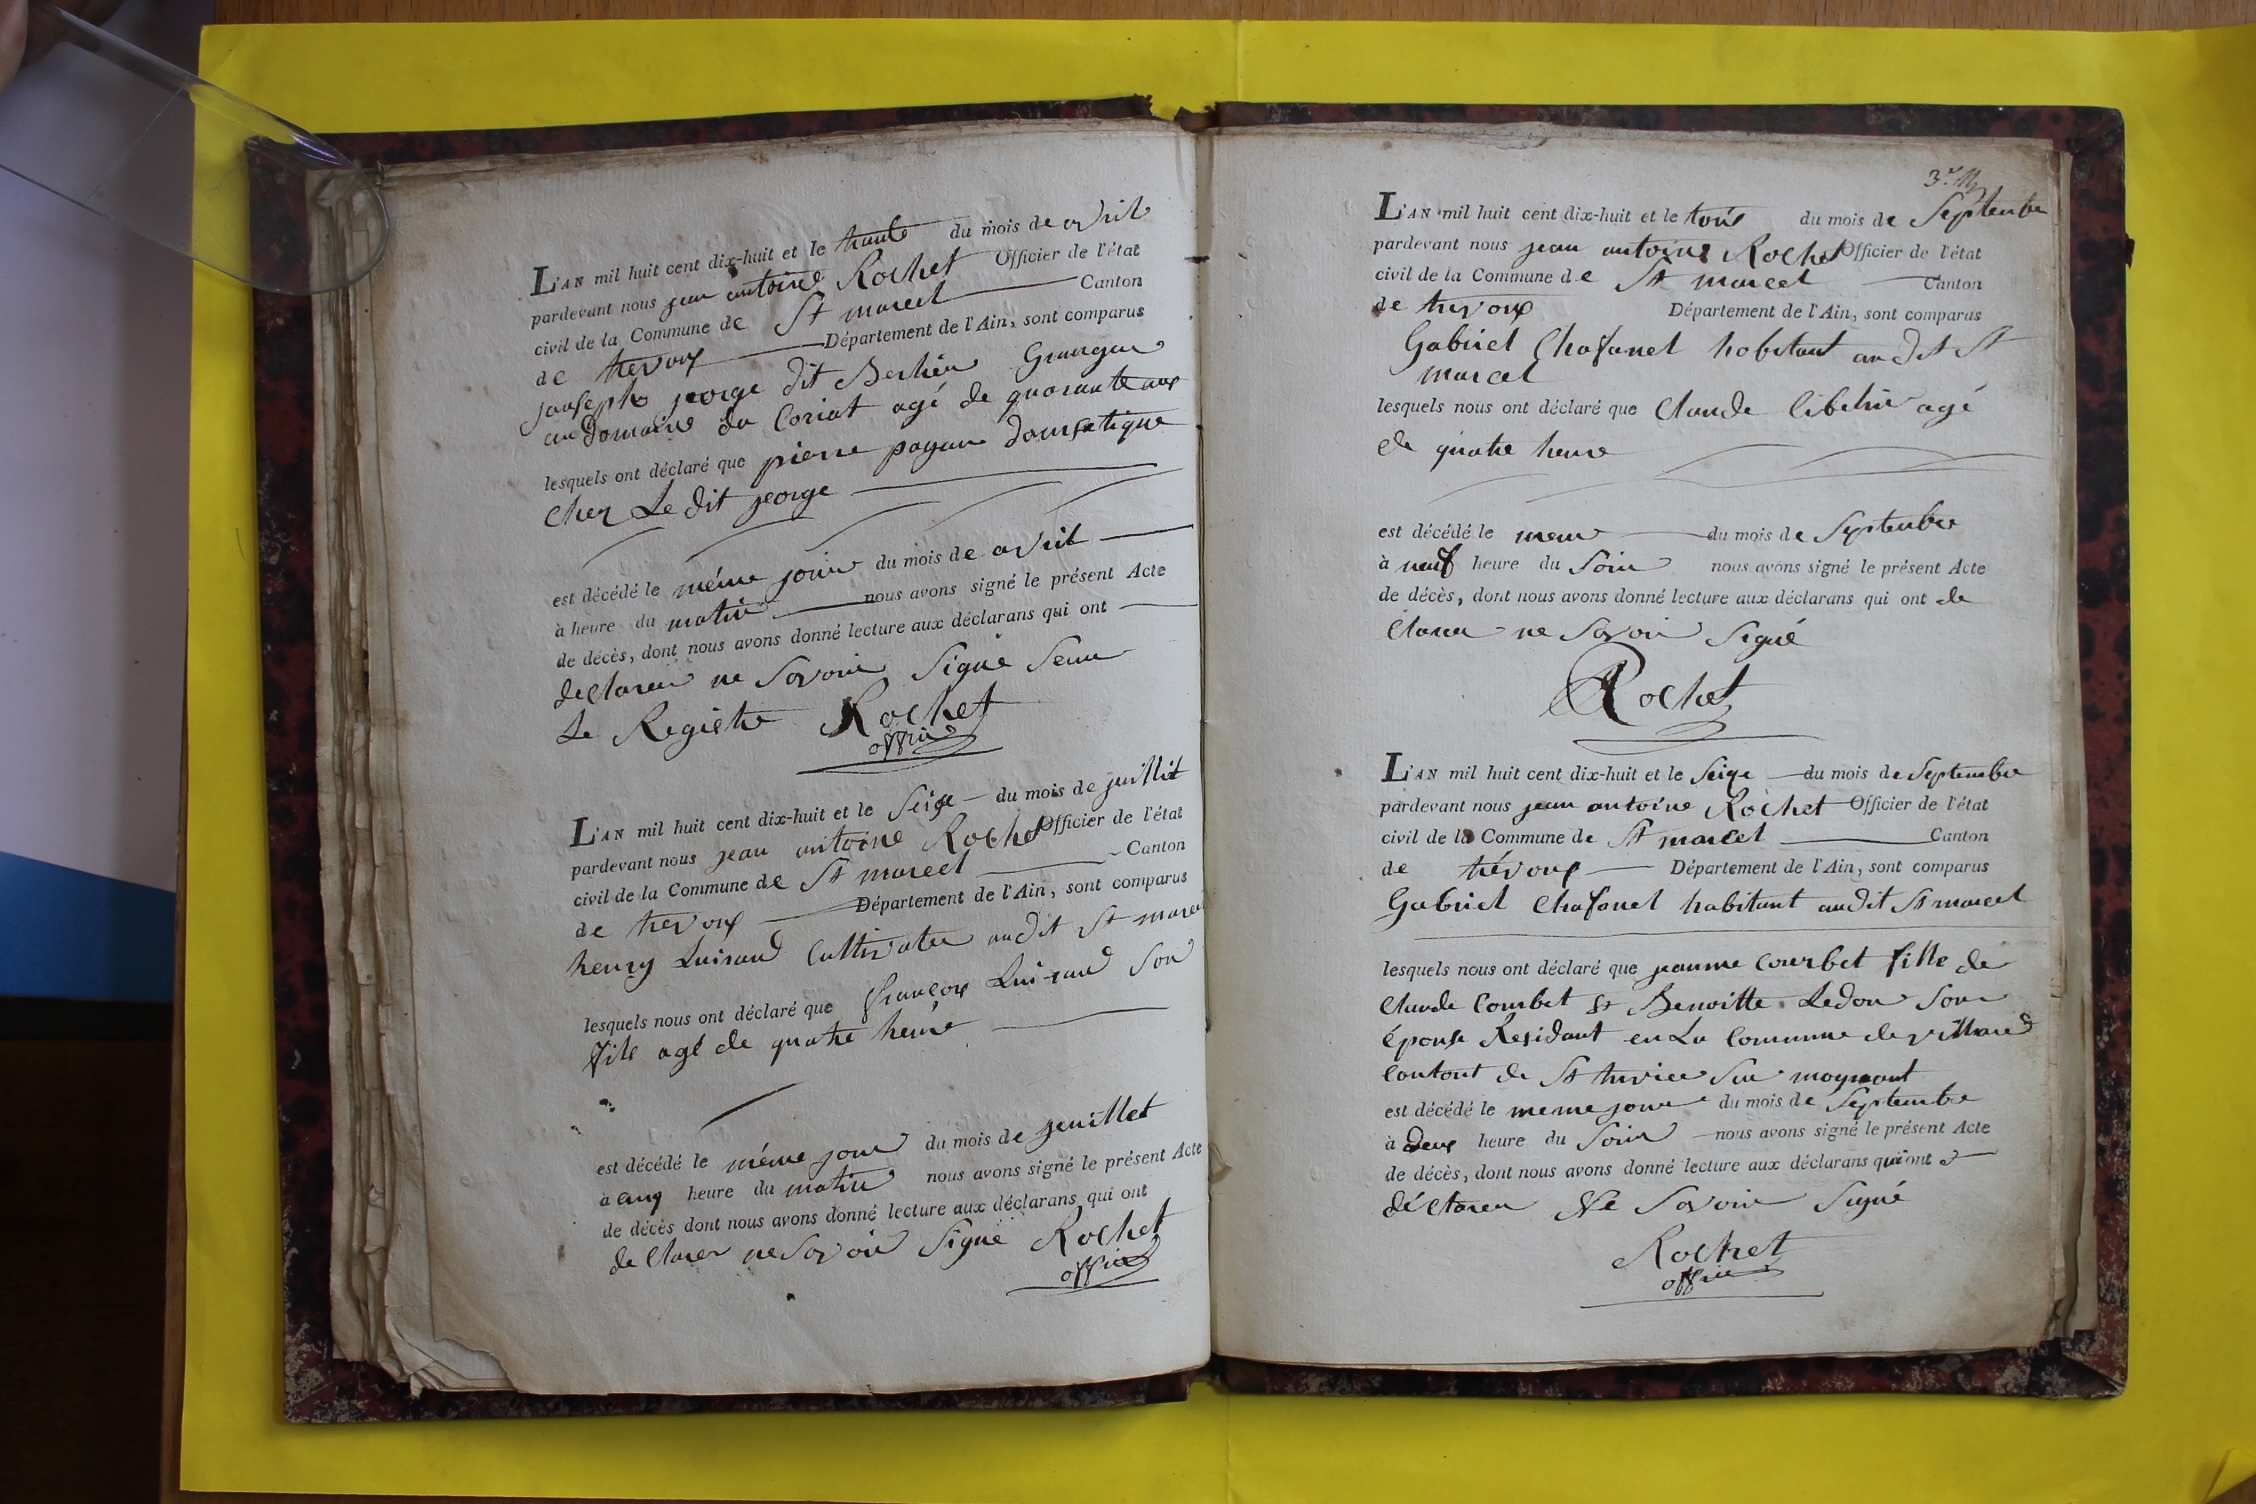 L'AN mil huit cent dix-huit et le trante du mois de avril
pardevant nous jean antoine Rochet Officier de l'état
civil de la Commune de St marcel Canton
de trevoux Département de l'Ain, sont comparus
jousepht jeorge dit Berlier Granger
au domaine du Coriat agé de quarante ans
lesquels ont déclaré que pierre payan domestique
chez Le dit jeorge
est décédé le même jour du mois de avril
à heure du matin nous avons signé le présent Acte
de décès, dont nous avons donné lecture aux déclarans qui ont
declarer ne Savoir Signé
Le Registre Rochet
officier
L'AN mil huit cent dix-huit et le Seize du mois de juillit
pardevant nous jean antoine Rochet Officier de l'état
civil de la Commune de St marcel Canton
de trevoux Département de l'Ain, sont comparus
henry Luiraud Cultivateur audit St marcel
lesquels nous ont déclaré que françois Luiraud Son
fils agé de quatre heure
est décédé le même jour du mois de jeuillet
à cinq heure du matin nous avons signé le présent Acte
de décès dont nous avons donné lecture aux déclarans qui ont
de Clarer ne Savoir Signé Rochet
officier
L'AN mil huit cent dix-huit et le trois du mois de Septembre
pardevant nous jean antoine Rochet Officier de l'état
civil de la Commune de St marcel Canton
de trevoux Département de l'Ain, sont comparus
Gabriel Chafanel habitant audit St
marcel
lesquels nous ont déclaré que Claude agé
de quatre heure
est décédé le meme du mois de Septembre
à neuf heure du Soir nous avons signé le présent Acte
de décès, dont nous avons donné lecture aux déclarans qui ont de
Clarer ne Savoir Signé
Rochet
L'AN mil huit cent dix-huit et le Seize du mois de Septembre
pardevant nous jean antoine Rochet Officier de l'état
civil de la Commune de St marcel Canton
de trévoux Département de l'Ain, sont comparus
Gabriel Chafanel habitant audit St marcel
lesquels nous ont déclaré que jeanne Courbet fille de
Claude Courbet et Benoitte Ledon Son
épouse Residant en La Commune de villard
contont de St trivier Sur moignant
est décédé le meme jour du mois de Septembre
à deux heure du Soir nous avons signé le présent Acte
de décès, dont nous avons donné lecture aux déclarans qui ont
déclarer Ne Savoir Signé
Rochet
officier